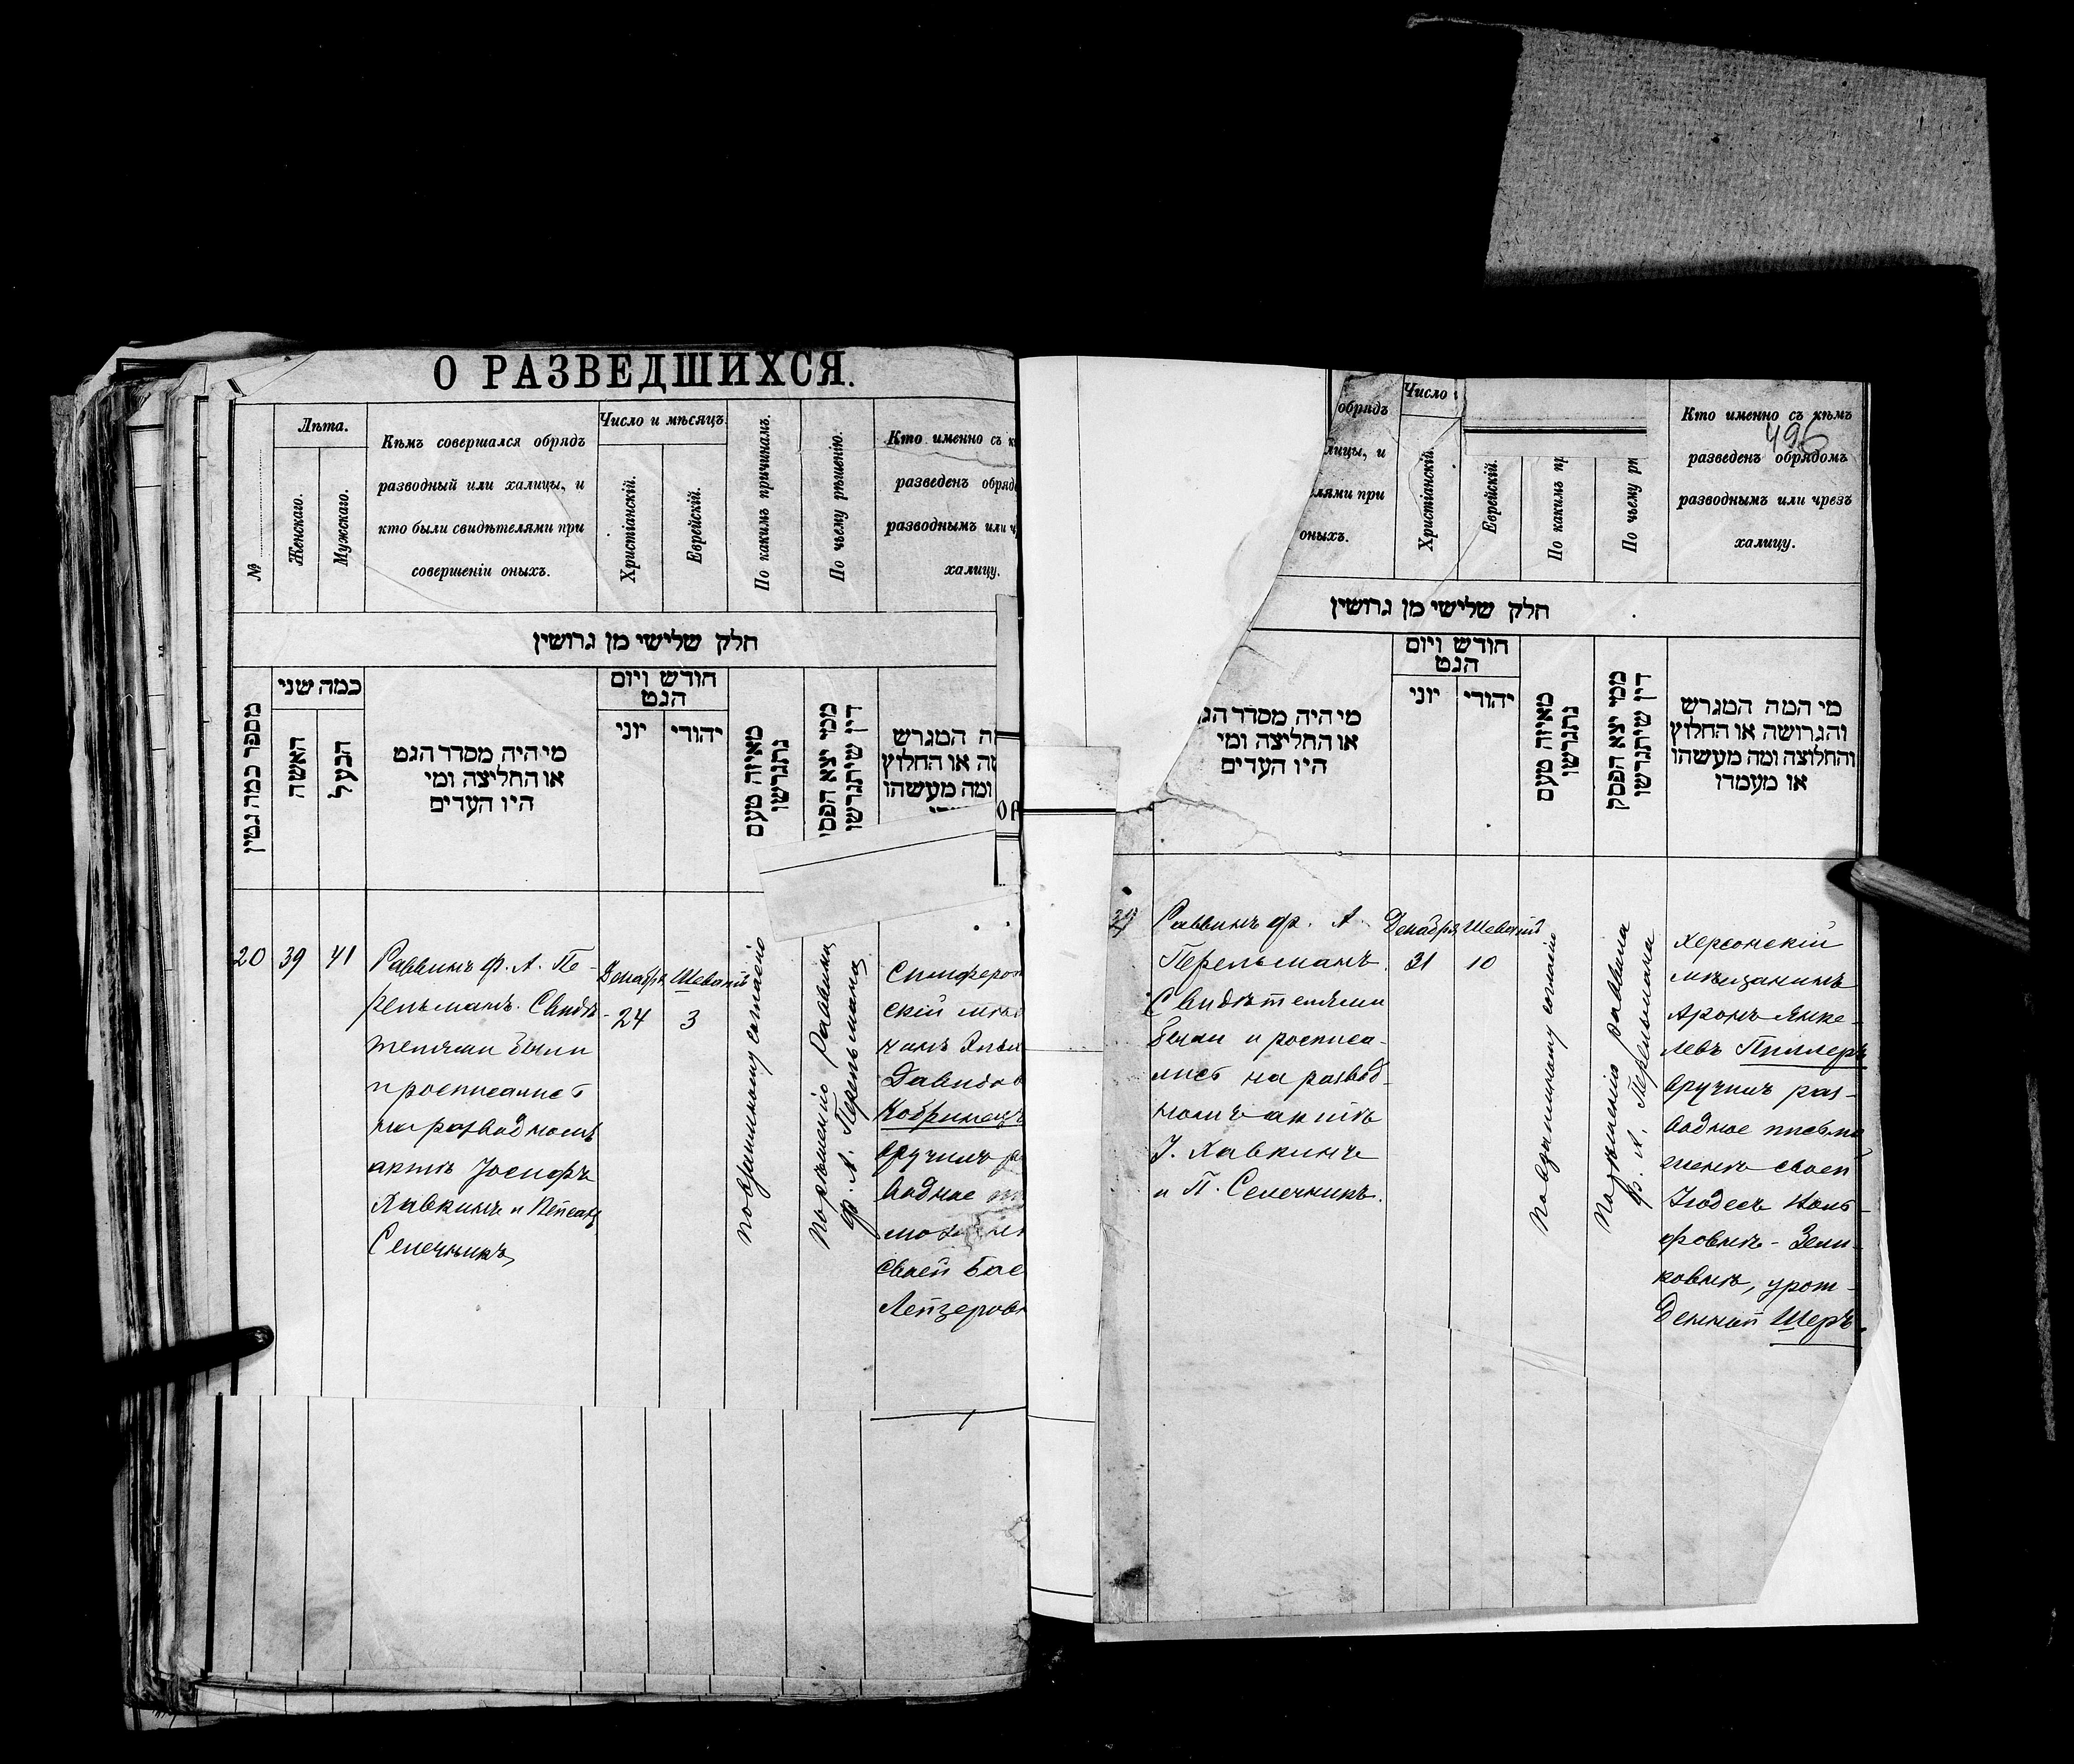 О РАЗВЕДШИХСЯ.
№
Лѣта.
Женскаго.
Мужскаго.
Кѣмъ совершался обрядъ
разводный или халицы, и
кто были свидѣтелями при
совершеніи оныхъ.
Число и мѣсяцъ.
Христіанскій.
Еврейскій.
По какимъ причинамъ.
По чьему рѣшенію.
Кто именно съ к
разведенъ обряд
разводнымъ или ч
халицу.
חלק שלישי מן גרושין
מספר כמה גטין
כמה שני
האשה
הבעל
מי היה מסדר הגט
או החליצה ומי
היו העדים
חודש ויום
הגט
יוני
יהודי
מאיזה טעם
נתגרשו
ממי יצא הפסק
דין שיתגרשו
מה המגרש
שה או החלוץ
ומה מעשהו
20
39
41
Раввинъ Ф. А. Пе-
рельманъ. Свидѣ-
телями были
и росписались
на разводномъ
актѣ Іосифъ
Хавкинъ и
Селечникъ
Декабря
24
Шевотъ
3
По взаимному согласію
По рѣшенію Раввина
Ф. А. Перельмана
Симферо
скій мѣщ
Давидов
Кобринецъ
вручилъ р
водное
своей
Лейзеров
обрядъ
лицы, и
лями при
оныхъ.
Число и
Христіанскій.
Еврейскій.
По какимъ пр
По чьему рѣ
Кто именно съ кѣмъ
496
разведенъ обрядомъ
разводнымъ или чрезъ
халицу.
חלק שלישי מן גרושין
מי היה מסדר הג
או החליצה ומי
היו העדים
חודש ויום
הגט
יוני
יהודי
מאיזה טעם
נתגרשו
ממי יצא הפסק
דין שיתגרשו
מי המה המגרש
והגרושה או החלוץ
והחלוצה ומה מעשהו
או מעמדו
Раввинъ Ф. А.
Перельманъ.
Свидѣтелями
были и росписа-
лись на развод-
номъ актѣ
І. Хавкинъ
и П. Селечникъ.
Декабря
31
Шевотъ
10
По взаимному согласію
По рѣшенію раввина
Ф. А. Перельмана
Херсонскій
мѣщанинъ
Аронъ Янке-
левъ Пиллеръ
вручилъ раз-
водное письмо
женѣ своей
Іюдесъ
урож-
денной Шеръ.